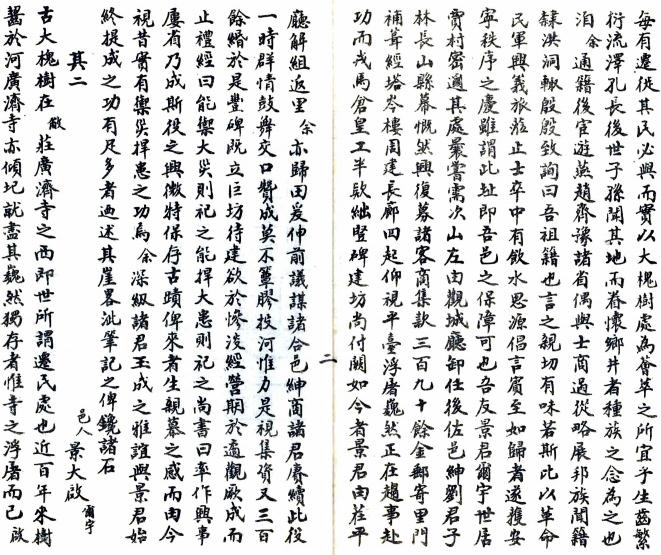 每有遷徙其民必與而實以大槐樹處為薈萃之所宜乎生齒繁
衍流澤孔長後世子孫聞其地而眷懷鄉井者種族之念為之也
洎余通籍後宦遊燕趙齊豫諸省偶與士商過從略展邦族聞籍
隸洪洞輒殷殷致詢曰吾祖籍也言之親切有味若斯比以革命
民軍興義旅蒞止士卒中有飲水思源倡言賓至如歸者遂獲安
寧秩序之慶雖謂此址即吾邑之保障可也吾友景君爾宇世居
賈村密邇其處曩嘗需次山左由觀城廳卸任後佐邑紳劉君子
林長山縣幕慨然興復募諸客商集款三百九十餘金郵寄里門
補葺經塔岑樓周建長廊四起仰視平臺浮屠巍然正在趨事赴
功而戎馬倉皇工半款絀豎碑建坊尚付闕如今者景君由茌平
廳解組返里余亦歸田爰伸前議謀諸合邑紳商諸君賡續此役
一時群情鼓舞交口贊成莫不簞醪投河惟力是視集資又三百
餘緡於是豐碑既立巨坊待建欲於慘淡經營期於適觀厥成而
止禮經曰能禦大災則祀之能捍大患則祀之尚書曰率作興事
屢省乃成斯役之興徵特保存古蹟俾來者生親慕之感而由今
視昔實有禦災捍患之功焉余深級諸君玉成之雅誼與景君始
終提成之功有足多者迺述其崖畧泚筆記之俾鑱諸石
其二
邑人景大啟爾宇
古大槐樹在敝莊廣濟寺之西即世所謂遷民處也近百年來樹
齧於河廣濟寺亦傾圮就盡其巍然獨存者惟寺之浮屠而已啟
二